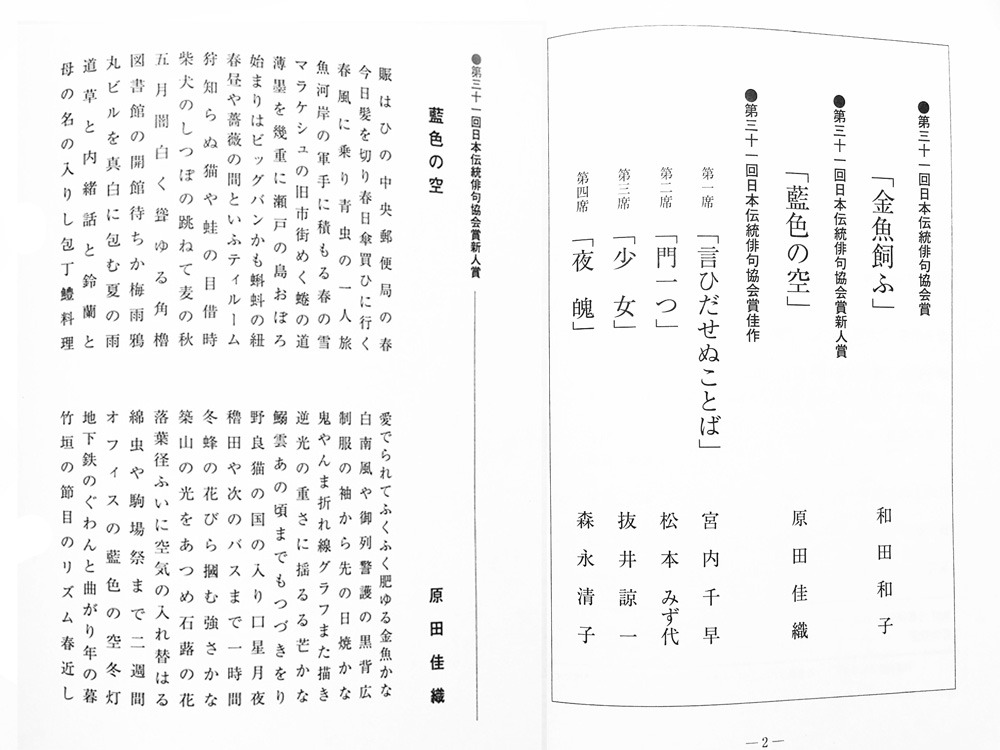 ●第三十一回日本伝統俳句協会賞
「金魚飼ふ」 和田和子
●第三十一回日本伝統俳句協会賞新人賞
「藍色の空」 原田佳織
●第三十一回日本伝統俳句協会賞佳作
第一席 「言ひだせぬことば」 宮内千早
第二席 「門一つ」 松本みず代
第三席 「少女」 抜井諒一
第四席 「夜魄」 森永清子
—2—
●第三十一回日本伝統俳句協会賞新人賞
藍色の空 原田佳織
賑はひの中央郵便局の春
今日髪を切り春日傘買ひに行く
春風に乗り青虫の一人旅
魚河岸の軍手に積もる春の雪
マラケシュの旧市街めく蜷の道
薄墨を幾重に瀬戸の島おぼろ
始まりはビッグバンかも蝌蚪の紐
春昼や薔薇の間といふティルーム
狩知らぬ猫や蛙の目借時
柴犬のしつぽの跳ねて麦の秋
五月闇白く聳ゆる角櫓
図書館の開館待ちか梅雨鴉
丸ビルを真白に包む夏の雨
道草と内緒話と鈴蘭と
母の名の入りし包丁鱧料理
愛でられてふくふく肥ゆる金魚かな
白南風や御列警護の黒背広
制服の袖から先の日焼かな
鬼やんま折れ線グラフまた描き
逆光の重さに揺るる芒かな
鰯雲あの頃までもつづきをり
野良猫の国の入り口星月夜
穭田や次のバスまで一時間
冬蜂の花びら摑む強さかな
築山の光をあつめ石蕗の花
落葉径ふいに空気の入れ替はる
綿虫や駒場祭まで二週間
オフィスの藍色の空冬灯
地下鉄のぐわんと曲がり年の暮
竹垣の節目のリズム春近し